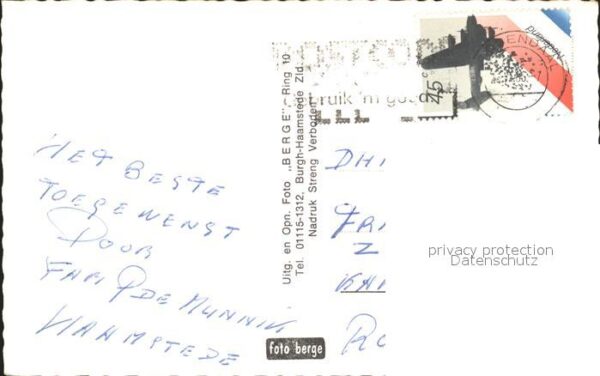 HET BESTE
TOEGEWENST
DOOR
FAM P DE MUNNIK
HAAMSTEDE
Uitg. en Opn. Foto „BERGE", Ring 10
Tel. 01115-1312, Burgh-Haamstede Zld.
Nadruk Streng Verboden
foto berge
45 c
ruik 'm goed
DH
FR
Z
KA
RO
privacy protection
Datenschutz